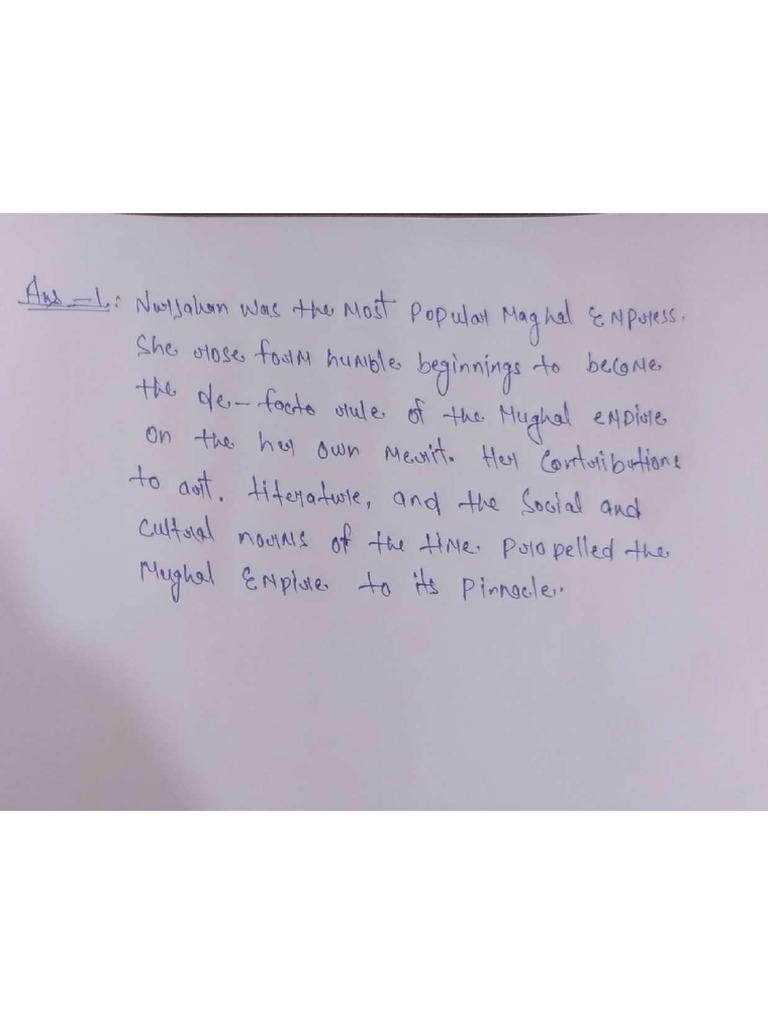 Ans-1: Nurjahan was the most popular Maghal Enpress.
She rose form humble beginnings to become
the de-facto rule of the Mughal enpire
on the her own merit. Her contributions
to art. literature, and the social and
cultral norms of the time propelled the
Mughal Enpire to its pinnacle.